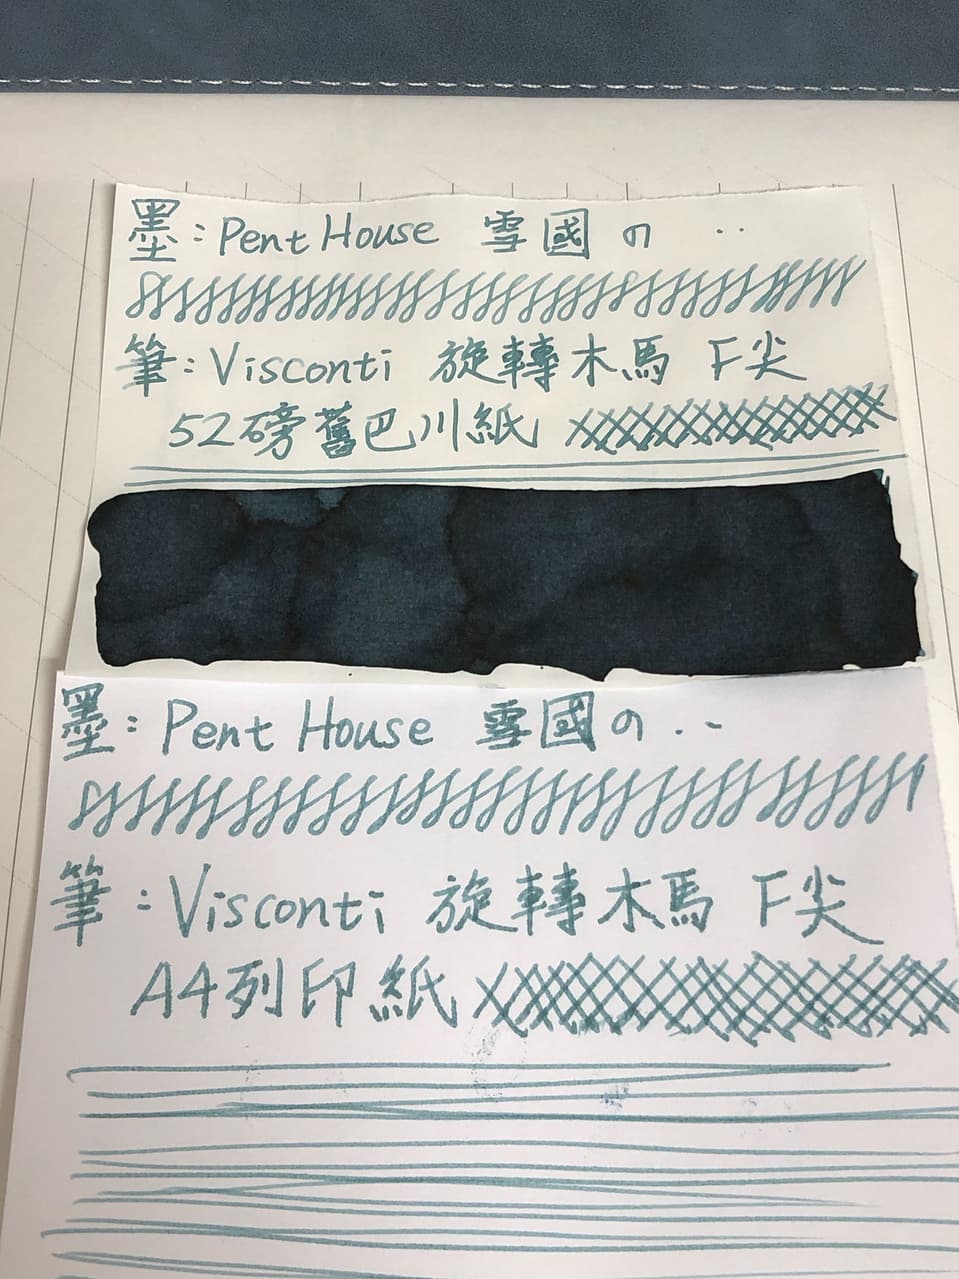 墨：Pent House 雪國の ‥
筆：Visconti 旋轉木馬 F尖
52磅舊巴川紙
墨：Pent House 雪國の . ~
筆：Visconti 旋轉木馬 F尖
A4列印紙